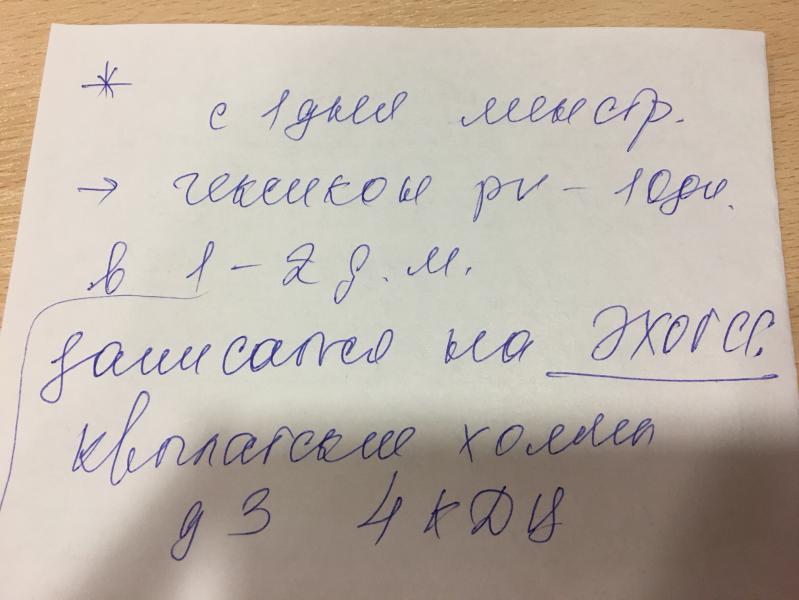 *
с 1 дня менстр.
→ гексикон pv – 10 дн.
в 1 – 2 д. м.
записатся на ЭХОГСС.
холмы
д 3 4 КДЦ